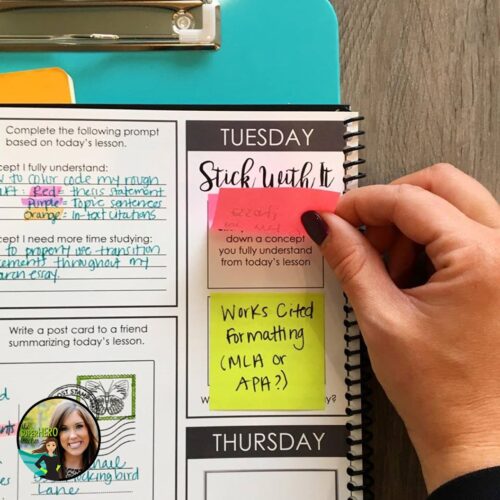 Complete the following prompt
based on today's lesson.
cept I fully understand:
to color code my rough
Red = thesis statement
Purple = Topic sentences
Orange = In-text citations
cept I need more time studying:
to properly use transition
throughout my
essay.
Write a post card to a friend
summarizing today's lesson.
mail
Lane
TUESDAY
Stick With It
down a concept
you fully understand
from today's lesson
Works Cited
Formatting
(MLA or
APA?)
THURSDAY